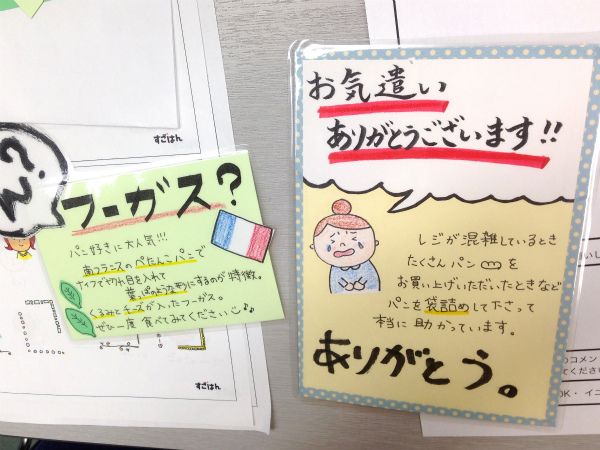 すごはん
フーガス?
パン好きに大人気!!!
南フランスのぺたんこパンで
ナイフで切れ目を入れて
葉っぱのような形にするのが特徴。
くるみとチーズが入ったフーガス。
ぜひ一度食べてみてください♪
すごはん
お気遣い
ありがとうございます!!
レジが混雑しているとき
たくさんパンを
お買い上げいただいたときなど
パンを袋詰めして下さって
本当に助かっています。
ありがとう。
のコメン
てください
OK・イニ